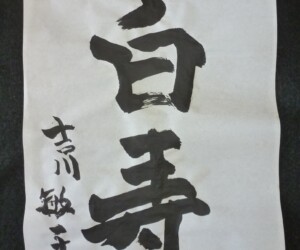 白寿
吉川敏子